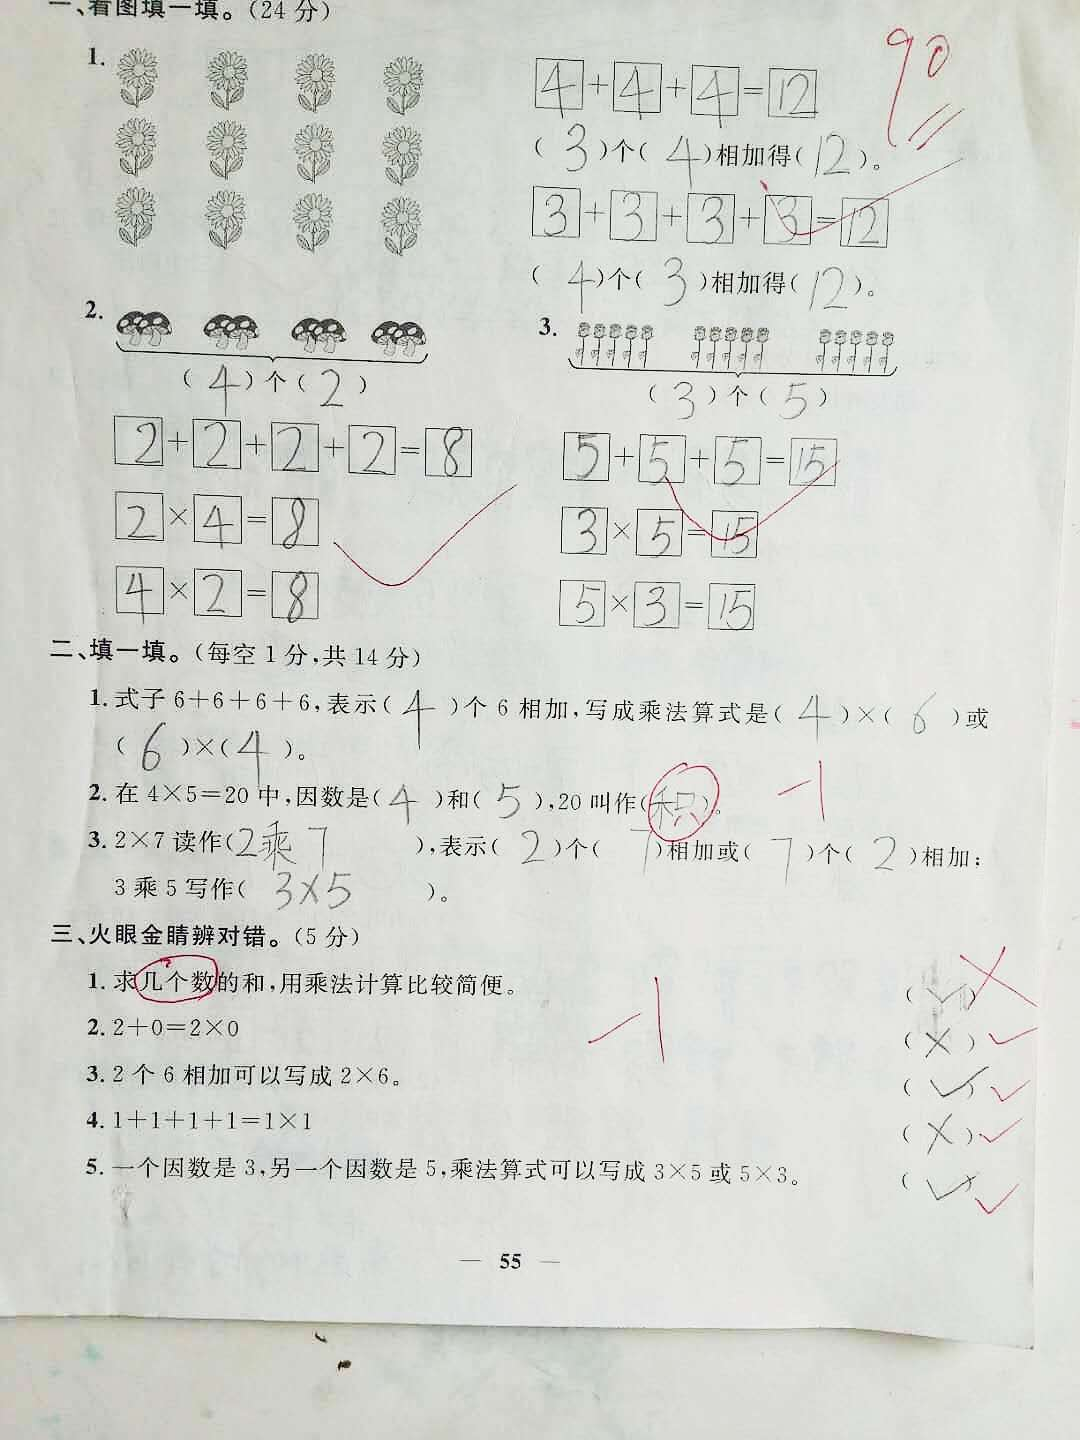 一、看图填一填。(24分)
90
1.
4+4+4=12
(3)个(4)相加得(12)。
3+3+3+3=12
(4)个(3)相加得(12)。
2.
(4)个(2)
2+2+2+2=8
2×4=8
4×2=8
3.
(3)个(5)
5+5+5=15
3×5=15
5×3=15
二、填一填。(每空1分,共14分)
1.式子6+6+6+6,表示(4)个6相加,写成乘法算式是(4)×(6)或
(6)×(4)。
2.在4×5=20中,因数是(4)和(5),20叫作(积)。
-1
3.2×7读作(2乘7),表示(2)个(7)相加或(7)个(2)相加;
3乘5写作(3×5)。
三、火眼金睛辨对错。(5分)
1.求几个数的和,用乘法计算比较简便。(✓)
-1
2.2+0=2×0(×)
3.2个6相加可以写成2×6。(✓)
4.1+1+1+1=1×1(×)
5.一个因数是3,另一个因数是5,乘法算式可以写成3×5或5×3。(✓)
— 55 —